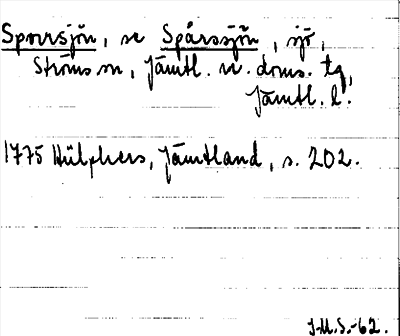 Sporrsjön, se Spårssjön, sjö,
Ströms sn, Jämtl. n. doms. tg,
Jämtl. l.
1775 Hülphers, Jämtland, s. 202.
J.M.S.-62.